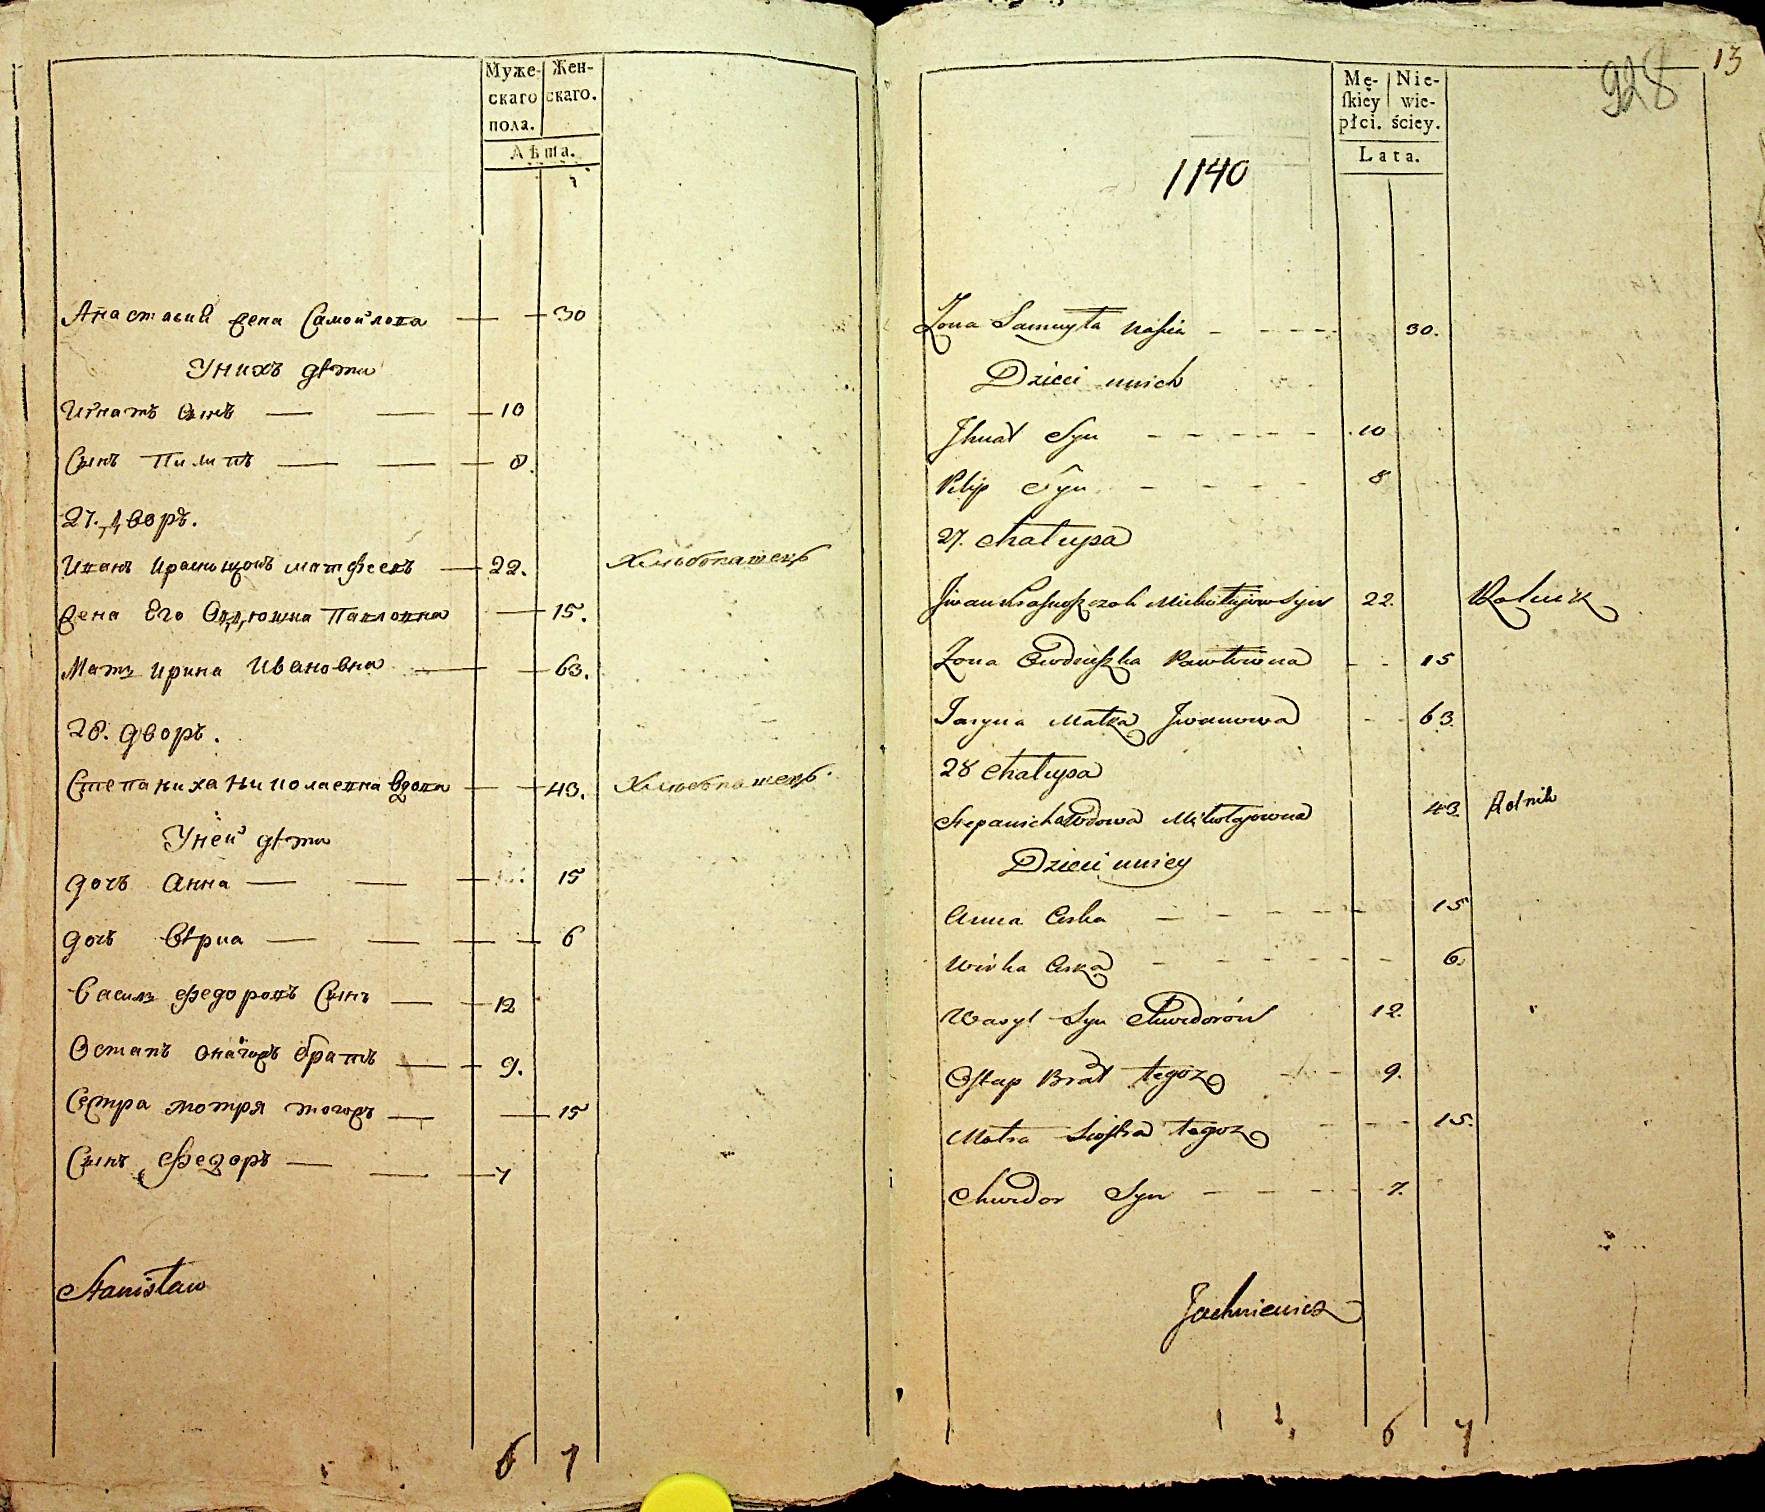 Муже-
скаго
пола.
Жен-
скаго.
Лѣта.
жена Самойлова 30
У нихъ дѣти
Игнатъ Сынъ 10
Сынъ Пилипъ 8.
27. дворъ.
Иванъ 22. Хлебопашецъ
жена Его Павловна 15.
Мать Ирина Ивановна 63.
28. дворъ.
Степаниха Николаевна вдова 43. Хлебопашецъ.
У ней дѣти
дочъ Анна 15
дочъ 6
Василь Федоровъ Сынъ 12
Остапъ братъ 9.
Сестра Мотря тогожъ 15
Сынъ Федоръ 7
Stanisław
6 7
13
928
Mę-
skiey
płci.
Nie-
wie-
ściey.
Lata.
1140
Zona Samuyła 30.
Dzieci unich
Ihnat Syn 10
Pilip Syn 8
27. Chałupa
Iwan Syn 22. Rolnik
Zona Pawłowna 15
Jaryna Matka Iwanowa 63
28 Chałupa
Stepanicha Wdowa Mikołajowna 43. Rolnik
Dzieci uniey
Anna Curka 15
Wirka Curka 6.
Wasyl Syn Chwedorów 12.
Ostap Brat tegoz 9.
Motra Siostra tegoz 15.
Chwedor Syn 7.
Jachniewicz
6 7